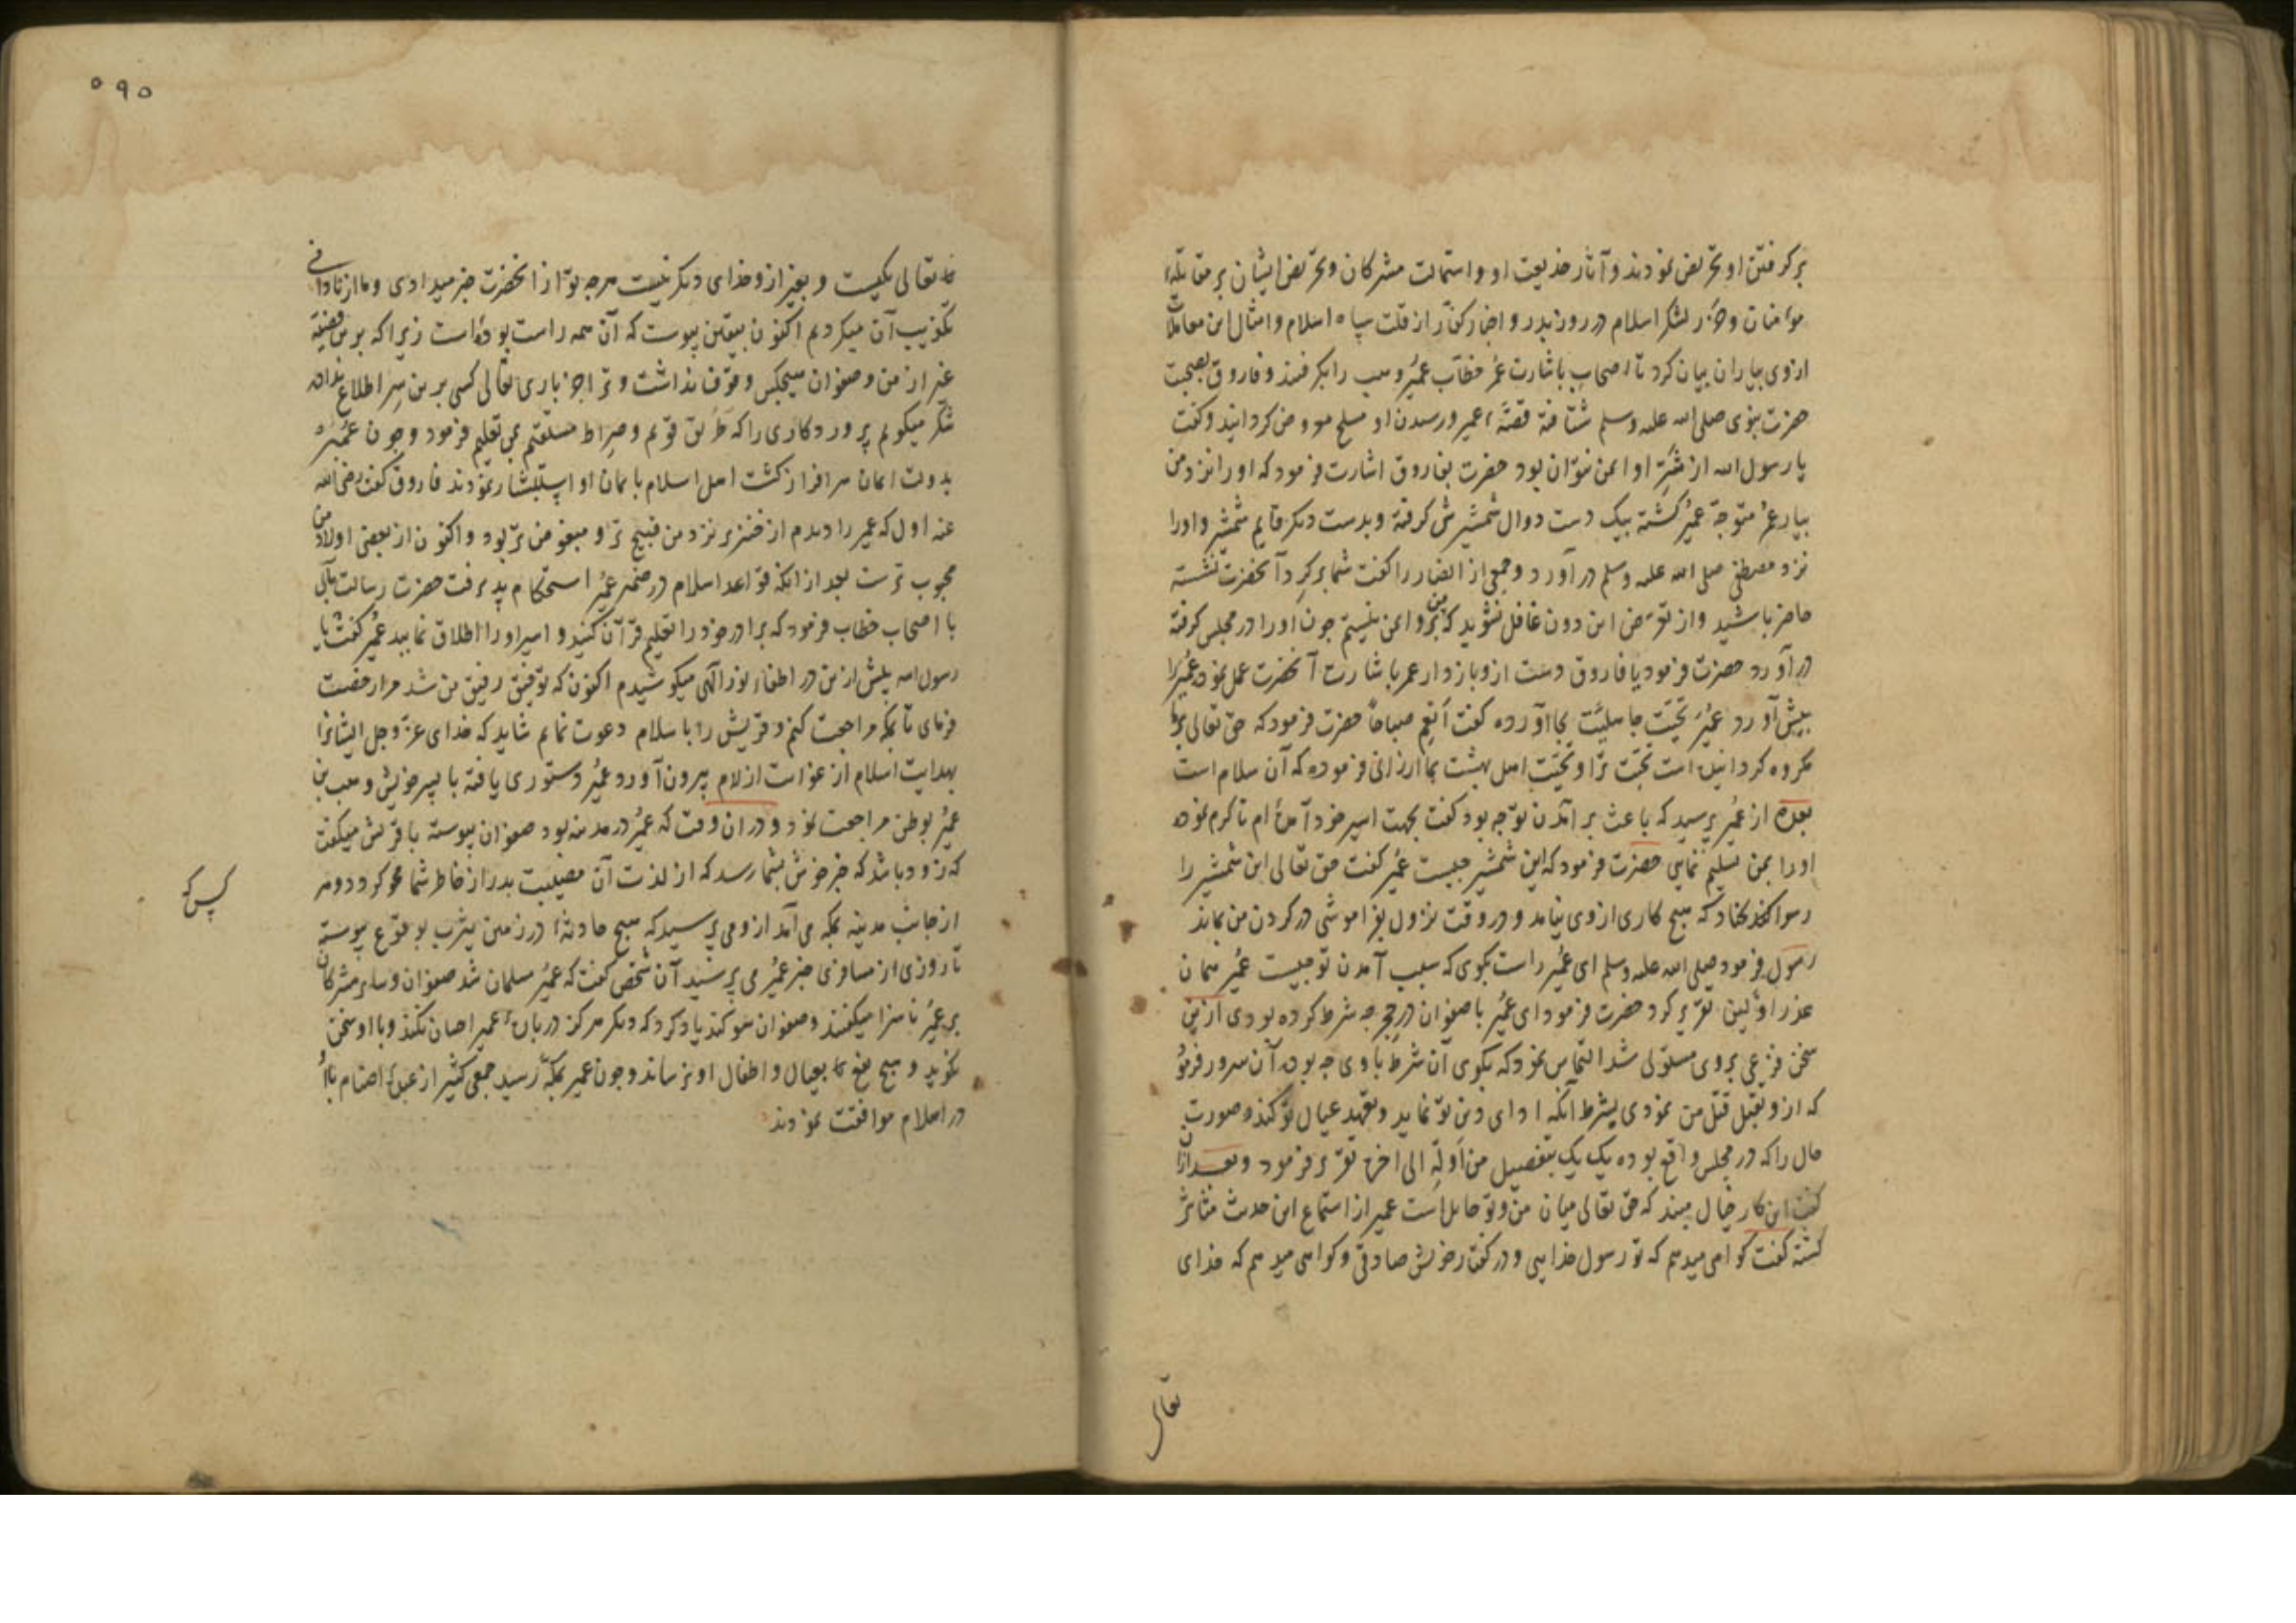 بر گرفتن او تحریض نمودند و آثار خدیعت او و استمالت مشرکان و تحریض ایشان بر مقاتله
مؤمنان و حزر لشکر اسلام در روز بدر و اخبار کفار از قلت سپاه اسلام و امثال این معاملات
از وی بیاران بیان کرد تا اصحاب باشارت عمر خطاب عمیر وهب را بگرفتند و فاروق بصحبت
حضرت نبوی صلی الله علیه وسلم شتافته قصهٔ عمیر و رسیدن او مسلح معروض گردانید و گفت
یا رسول الله از شر او ایمن نتوان بود حضرت بفاروق اشارت فرمود که او را نزد من
بیار عمر متوجه عمیر گشته بیک دست دوال شمشیرش گرفته و بدست دیگر قایم شمشیر و او را
نزد مصطفی صلی الله علیه وسلم در آورد و جمعی از انصار را گفت شما بر گرد آنحضرت نشسته
حاضر باشید و از تعرض این دون غافل نشوید که من برو ایمن نیستم چون او را در مجلس گرفته
در آورد حضرت فرمود یا فاروق دست ازو باز دار عمر باشارت آنحضرت عمل نمود عمیر را
پیش آورد عمیر تحیت جاهلیت بجا آورده گفت انعم صباحا حضرت فرمود که حق تعالی بر ما
مکروه گردانیده است تحیت ترا و تحیت اهل بهشت بما ارزانی فرموده که آن سلام است
بعده از عمیر پرسید که باعث بر آمدن تو چه بود گفت بجهت اسیر خود آمده‌ام تا کرم نموده
او را بمن تسلیم نمایی حضرت فرمود که این شمشیر چیست عمیر گفت حق تعالی این شمشیر را
رسوا کند که هیچ کاری از وی نیامد و در وقت نزول بفراموشی در گردن من بماند
رسول فرمود صلی الله علیه وسلم ای عمیر راست بگوی که سبب آمدن تو چیست عمیر همان
عذر اولین تقریر کرد حضرت فرمود ای عمیر با صفوان در حجر چه شرط کرده بودی ازین
سخن فزعی بر وی مستولی شد التماس نمود که بگوی آن شرط با وی چه بود آن سرور فرمود
که ازو تقبل قتل من نمودی بشرط آنکه ادای دین تو نماید و تعهد عیال تو کند و صورت
حال را که در مجلس واقع بوده یک یک بتفصیل من اوله الی اخره تقریر فرمود و بعد ازان
گفت این کار خیال مبند که حق تعالی میان من و تو حایل است عمیر از استماع این حدیث متأثر
گشته گفت گواهی میدهم که تو رسول خدایی و در گفتار خویش صادقی و گواهی میدهم که خدای
تعالی
۵۹۵
تعالی یکیست و بغیر ازو خدای دیگر نیست هرچه تو از آنحضرت خبر میدادی و ما از نادانی
تکذیب آن میکردیم اکنون بیقین پیوست که آن همه راست بوده است زیرا که برین قضیه
غیر از من و صفوان هیچکس وقوف نداشت و ترا جز باری تعالی کسی برین سر اطلاع نداده
شکر میگویم پروردگاری را که طریق قویم و صراط مستقیم بمن تعلیم فرمود و چون عمیر
بدولت ایمان سرافراز گشت اهل اسلام بایمان او استبشار نمودند فاروق گفت رضی الله
عنه اول که عمیر را دیدم از خنزیر نزد من قبیح تر و مبغوض تر بود و اکنون از بعضی اولاد من
محبوب ترست بعد از آنکه قواعد اسلام در ضمیر عمیر استحکام پذیرفت حضرت رسالت مآبی
با اصحاب خطاب فرمود که برادر خود را تعلیم قرآن کنید و اسیر او را اطلاق نمایید عمیر گفت یا
رسول الله پیش ازین در اطفاء نور الهی میکوشیدم اکنون که توفیق رفیق من شد مرا رخصت
فرمای تا بمکه مراجعت کنم و قریش را باسلام دعوت نمایم شاید که خدای عز وجل ایشانرا
بهدایت اسلام از غوایت ازلام بیرون آورد عمیر دستوری یافته با پسر خویش وهب بن
عمیر بوطن مراجعت نمود و در آن وقت که عمیر در مدینه بود صفوان پیوسته با قریش میگفت
که زود باشد که خبر خوش بشما رسد که از لذت آن مصیبت بدر از خاطر شما محو گردد و هر
کس که
از جانب مدینه بمکه می‌آمد ازو می‌پرسید که هیچ حادثهٔ در زمین یثرب بوقوع پیوسته
تا روزی از مسافری خبر عمیر می‌پرسید آن شخص گفت که عمیر مسلمان شد صفوان و سایر مشرکان
بر عمیر ناسزا میگفتند و صفوان سوگند یاد کرد که دیگر هرگز در بارهٔ عمیر احسان نکند و با او سخن
نگوید و هیچ نفع بعیال و اطفال او نرساند و چون عمیر بمکه رسید جمعی کثیر از عبدهٔ اصنام با او
در اسلام موافقت نمودند